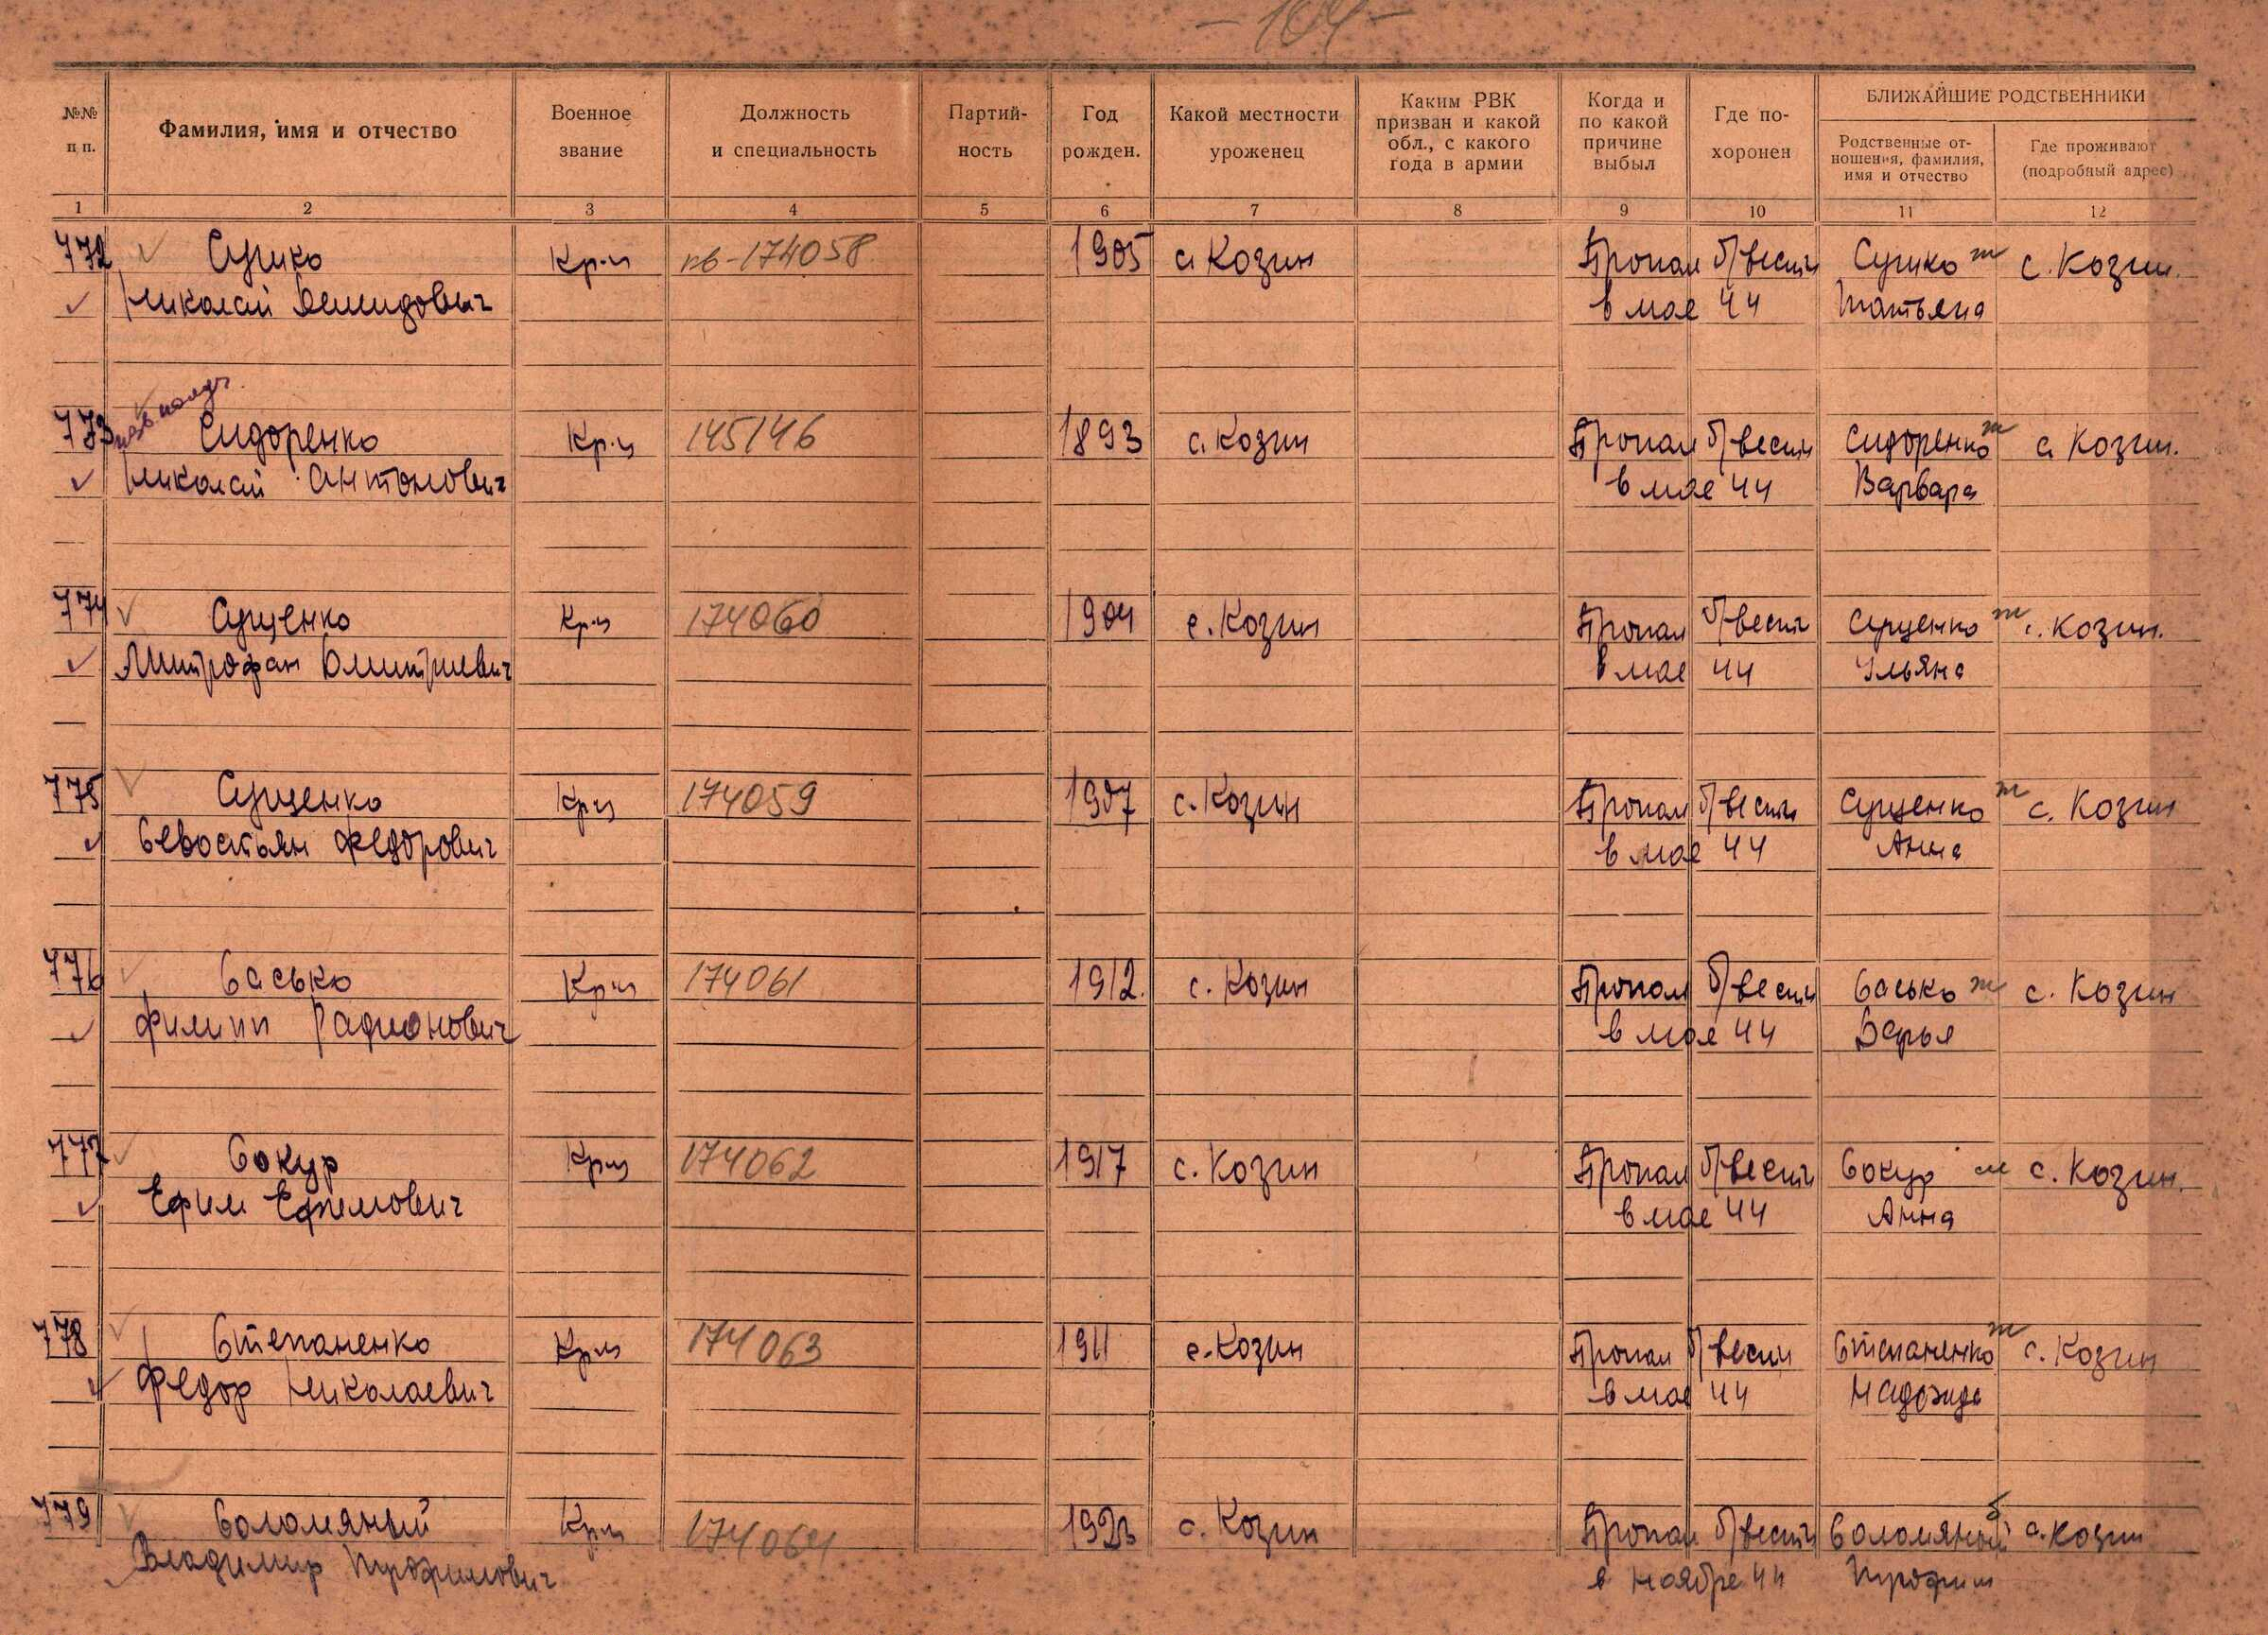 - 104 -
№№ п п.
Фамилия, имя и отчество
Военное звание
Должность и специальность
Партий- ность
Год рожден.
Какой местности уроженец
Каким РВК призван и какой обл., с какого года в армии
Когда и по какой причине выбыл
Где по- хоронен
БЛИЖАЙШИЕ РОДСТВЕННИКИ
Родственные от- ношения, фамилия, имя и отчество
Где проживают (подробный адрес)
1 2 3 4 5 6 7 8 9 10 11 12
772 Сушко Кр-ц пв-174058 1905 с. Козин Пропал б/вести Сушко ж с. Козин.
Николай Демидович в мае 44 Татьяна
773 Сидоренко Кр-ц 145146 1893 с. Козин Пропал б/вести Сидоренко ж с. Козин.
Николай Антонович в мае 44 Варвара
774 Сущенко Кр-ц 174060 1904 с. Козин Пропал б/вести Сущенко ж с. Козин.
Митрофан Дмитриевич в мае 44 Ульяна
775 Сущенко Кр-ц 174059 1907 с. Козин Пропал б/вести Сущенко ж с. Козин
Севостьян Федорович в мае 44 Анна
776 Сасько Кр-ц 174061 1912. с. Козин Пропал б/вести Сасько ж с. Козин
Филипп Радионович в мае 44 Дарья
777 Сокур Кр-ц 174062 1917 с. Козин Пропал б/вести Сокур м с. Козин.
Ефим Ефимович в мае 44 Анна
778 Степаненко Кр-ц 174063 1911 с. Козин Пропал б/вести Степаненко ж с. Козин
Федор Николаевич в мае 44 Надежда
779 Соломяный Кр-ц 174064 с. Козин Пропал б/вести Соломяный с. Козин
Владимир Трофимович в ноябре 44 Трофим